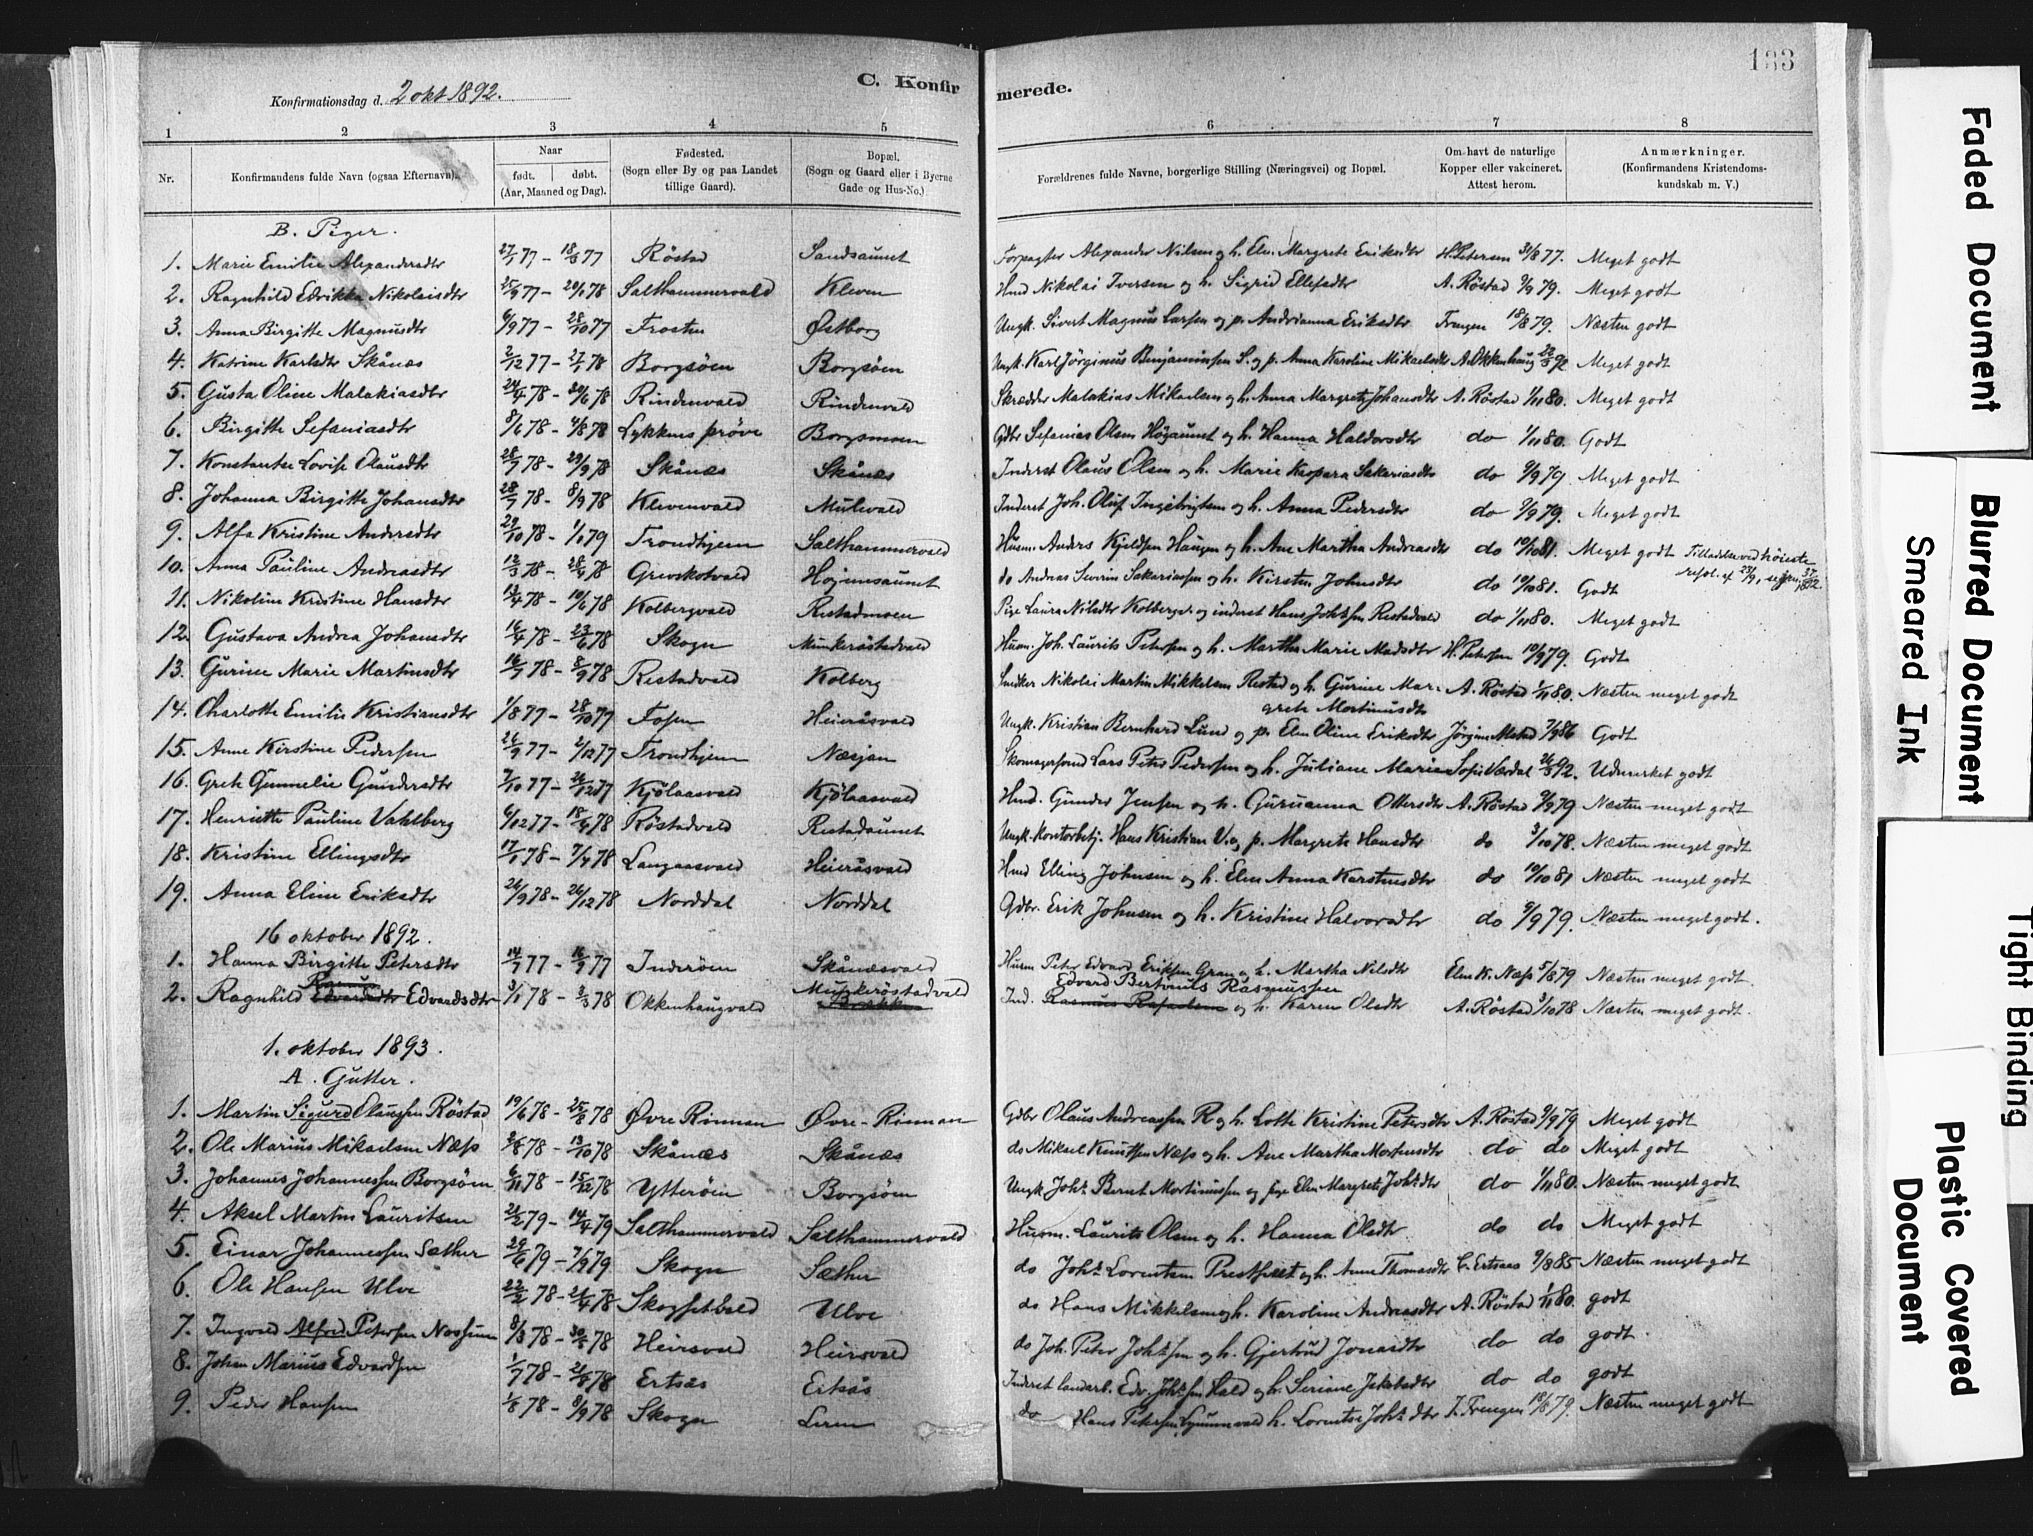 133
C. Konfirmerede.
Konfirmationsdag d. 2 okt 1892.
1 2 3 4 5 6 7 8
Nr. Konfirmandens fulde Navn (ogsaa Efternavn). Naar født. døbt. (Aar, Maaned og Dag). Fødested. (Sogn eller By og paa Landet tillige Gaard). Bopæl. (Sogn og Gaard eller i Byerne Gade og Hus-No.) Forældrenes fulde Navne, borgerlige Stilling (Næringsvei) og Bopæl. Om havt de naturlige Kopper eller vakcineret. Attest herom. Anmærkninger. (Konfirmandens Kristendomskundskab m. V.)
B. Piger.
1. Marie Emilie Alexandersdtr 27/7 77 - 18/8 77 Röstad Sandsaunet Forpagter Alexander Nilsen og h. Elen Margrete Eriksdtr H. Petersen 31/8 77. Meget godt
2. Ragnhild Edrikka Nikolaisdtr 25/9 77 - 20/1 78 Salthammervald Kleven Hmd Nikolai Iversen og h. Sigrid Ellefsdtr A. Röstad 9/9 79. Meget godt
3. Anna Birgitte Magnusdtr 6/9 77 - 28/10 77 Frosten Østborg Ungk. Sivert Magnus Larsen og p. Andrianna Eriksdtr Trengen 18/8 79. Næsten godt
4. Katrine Karlsdtr Skånes 2/12 77 - 27/1 78 Borgsöen Borgsöen Ungk. Karl Jörginus Benjaminsen S. og p. Anna Karoline Mikaelsdtr A. Okkenhaug 22/3 92 Meget godt
5. Gusta Oline Malakiasdtr 24/4 78 - 20/6 78 Rindenvald Rindenvald Skrædder Malakias Mikaelsen og h. Anna Margrete Johansdtr A. Röstad 1/11 80. Meget godt
6. Birgitte Sefaniasdtr 8/6 78 - 4/8 78 Lykkens pröve Borgsmoen Gdbr Sefanias Olsen Högaunet og h. Hanna Haldorsdtr do 1/11 80. Godt
7. Konstantse Lovise Olausdtr 28/7 78 - 29/9 78 Skånes Skånes Inderst Olaus Olsen og h. Marie Kaspara Sakariasdtr do 9/9 79. Meget godt
8. Johanna Birgitte Johansdtr 28/7 78 - 8/9 78 Klevenvald Mulevald Inderst Joh. Oluf Ingebrigtsen og h. Anna Pedersdtr do 9/9 79. Meget godt
9. Alfa Kristine Andersdtr 29/10 78 - 1/1 79 Trondhjem Salthammervald Husm. Anders Kjeldsen Haugen og h. Ane Martha Andreasdtr do 10/10 81. Meget godt Tilladelse ved höieste resol. af 23/9,
10. Anna Pauline Andreasdtr 12/3 78 - 28/4 78 Grevskotvald Højemsaunet do Andreas Severin Sakariassen og h. Kirsten Johnsdtr do 10/10 81. Godt
11. Nikoline Kristine Hansdtr 13/4 78 - 10/6 78 Kolbergvald Restadmoen Pige Laura Nilsdtr Kolbergv. og inderst Hans Johssen Restadvald do 1/11 80. Meget godt
12. Gustava Andrea Johansdtr 16/4 78 - 23/6 78 Skogn Munkeröstadvald Husm. Joh. Laurits Petersen og h. Martha Marie Madsdtr H. Petersen 10/9 79. Godt
13. Gurine Marie Martinsdtr 16/7 78 - 8/9 78 Restadvald Kolberg Snedker Nikolai Martin Mikkelsen Restad og h. Gurine Mar- A. Röstad 1/11 80. Næsten meget godt
grete Mortinusdtr
14. Charlotte Emilie Kristiansdtr 1/8 77 - 28/10 77 Fosen Heieråsvald Ungk. Kristian Bernhard Lund og p. Elen Oline Eriksdtr 7/9 86 Godt
15. Anne Kirstine Pedersen 26/9 77 - 2/12 77 Trondhjem Næsjan Skomagersvend Lars Peter Pedersen og h. Juliane Marie Sofie Værdal 26/3 92. Udmerket godt
16. Grete Gunnelie Gundersdtr 7/10 77 - 26/12 77 Kjölaasvald Kjölaasvald Hmd. Gunder Jensen og h. Guruanna Ottersdtr A. Röstad 9/9 79 Næsten meget godt
17. Henriette Pauline Vahlberg 6/12 77 - 18/4 78 Röstadvald Restadaunet Ungk. kontorbetj. Hans Kristian V. og p. Margrete Hansdtr do 3/10 78. Næsten meget godt
18. Kristine Ellingsdtr 17/1 78 - 7/4 78 Langaasvald Heieråsvald Hmd Elling Johnsen og h. Elen Anna Karstensdtr do 10/10 81 Næsten meget godt
19. Anna Eline Eriksdtr 26/9 78 - 26/12 78 Norddal Norddal Gdbr. Erik Johnsen og h. Kristine Halvorsdtr do 9/9 79. Næsten meget godt.
16 oktober 1892.
1. Hanna Birgitte Petersdtr 14/7 77 - 16/9 77 Inderöen Skånesvald Husm Peter Edvard Eriksen Gran og h. Martha Nilsdtr Elen K. Næss 5/8 79 Næsten meget godt.
2. Ragnhild Edvardsdtr 3/1 78 - 3/3 78 Okkenhaugvald Munkeröstadvald Brækken Ind. Edvard Bertinius Rasmussen og h. Karen Olsdtr A. Röstad 3/10 78 Næsten meget godt.
1. oktober 1893.
A. Gutter.
1. Martin Sigurd Olaussen Röstad 19/6 78 - 25/8 78 Øvre Rinnan Øvre-Rinnan Gdbr Olaus Andreassen R og h. Lotte Kristine Petersdtr A. Röstad 9/9 79 Meget godt
2. Ole Marius Mikaelsen Næss 2/8 78 - 13/10 78 Skånes Skånes do Mikael Knutssen Næss og h. Ane Martha Mortensdtr do do Meget godt
3. Johannes Johannessen Borgsöen 6/11 78 - 15/12 78 Ytteröen Borgsöen Ungk. Johs Bernt Mortinussen og pige Elen Margrete Johs.dtr do 1/11 80. Næsten meget godt
4. Aksel Martin Lauritsen 21/2 79 - 14/4 79 Salthammervald Salthammervald Husm. Laurits Olsen og h. Hanna Olsdtr do do Meget godt
5. Einar Johannessen Sæther 29/6 79 - 7/9 79 Skogn Sæther do Johs Lorentsen og h. Anne Thomasdtr 9/8 85 Næsten meget godt
6. Ole Hansen Ulve 22/2 78 - 21/4 78 Ulve do Hans Mikkelsen og h. Karoline Andreasdtr A. Röstad 1/11 80. godt
7. Ingvald Alfred Petersen 8/3 78 - 78 Heirsvald Heirsvald do Joh. Peter Johssen og h. Gjertrud Jonasdtr do do godt.
8. Johan Marius Edvardsen 1/7 78 - 21/9 78 Ertsås Ertsås Inderst landarb. Edv. Johssen Hald og h. Seriane Jakobsdtr do do godt
9. Peder Hansen 1/8 78 - 8/9 78 Skogn Leren do Hans Petersen h. Lorentse Johs.dtr Trengen 18/6 79. Næsten meget godt
Faded Document
Blurred Document
Smeared Ink
Tight Binding
Plastic Covered Document